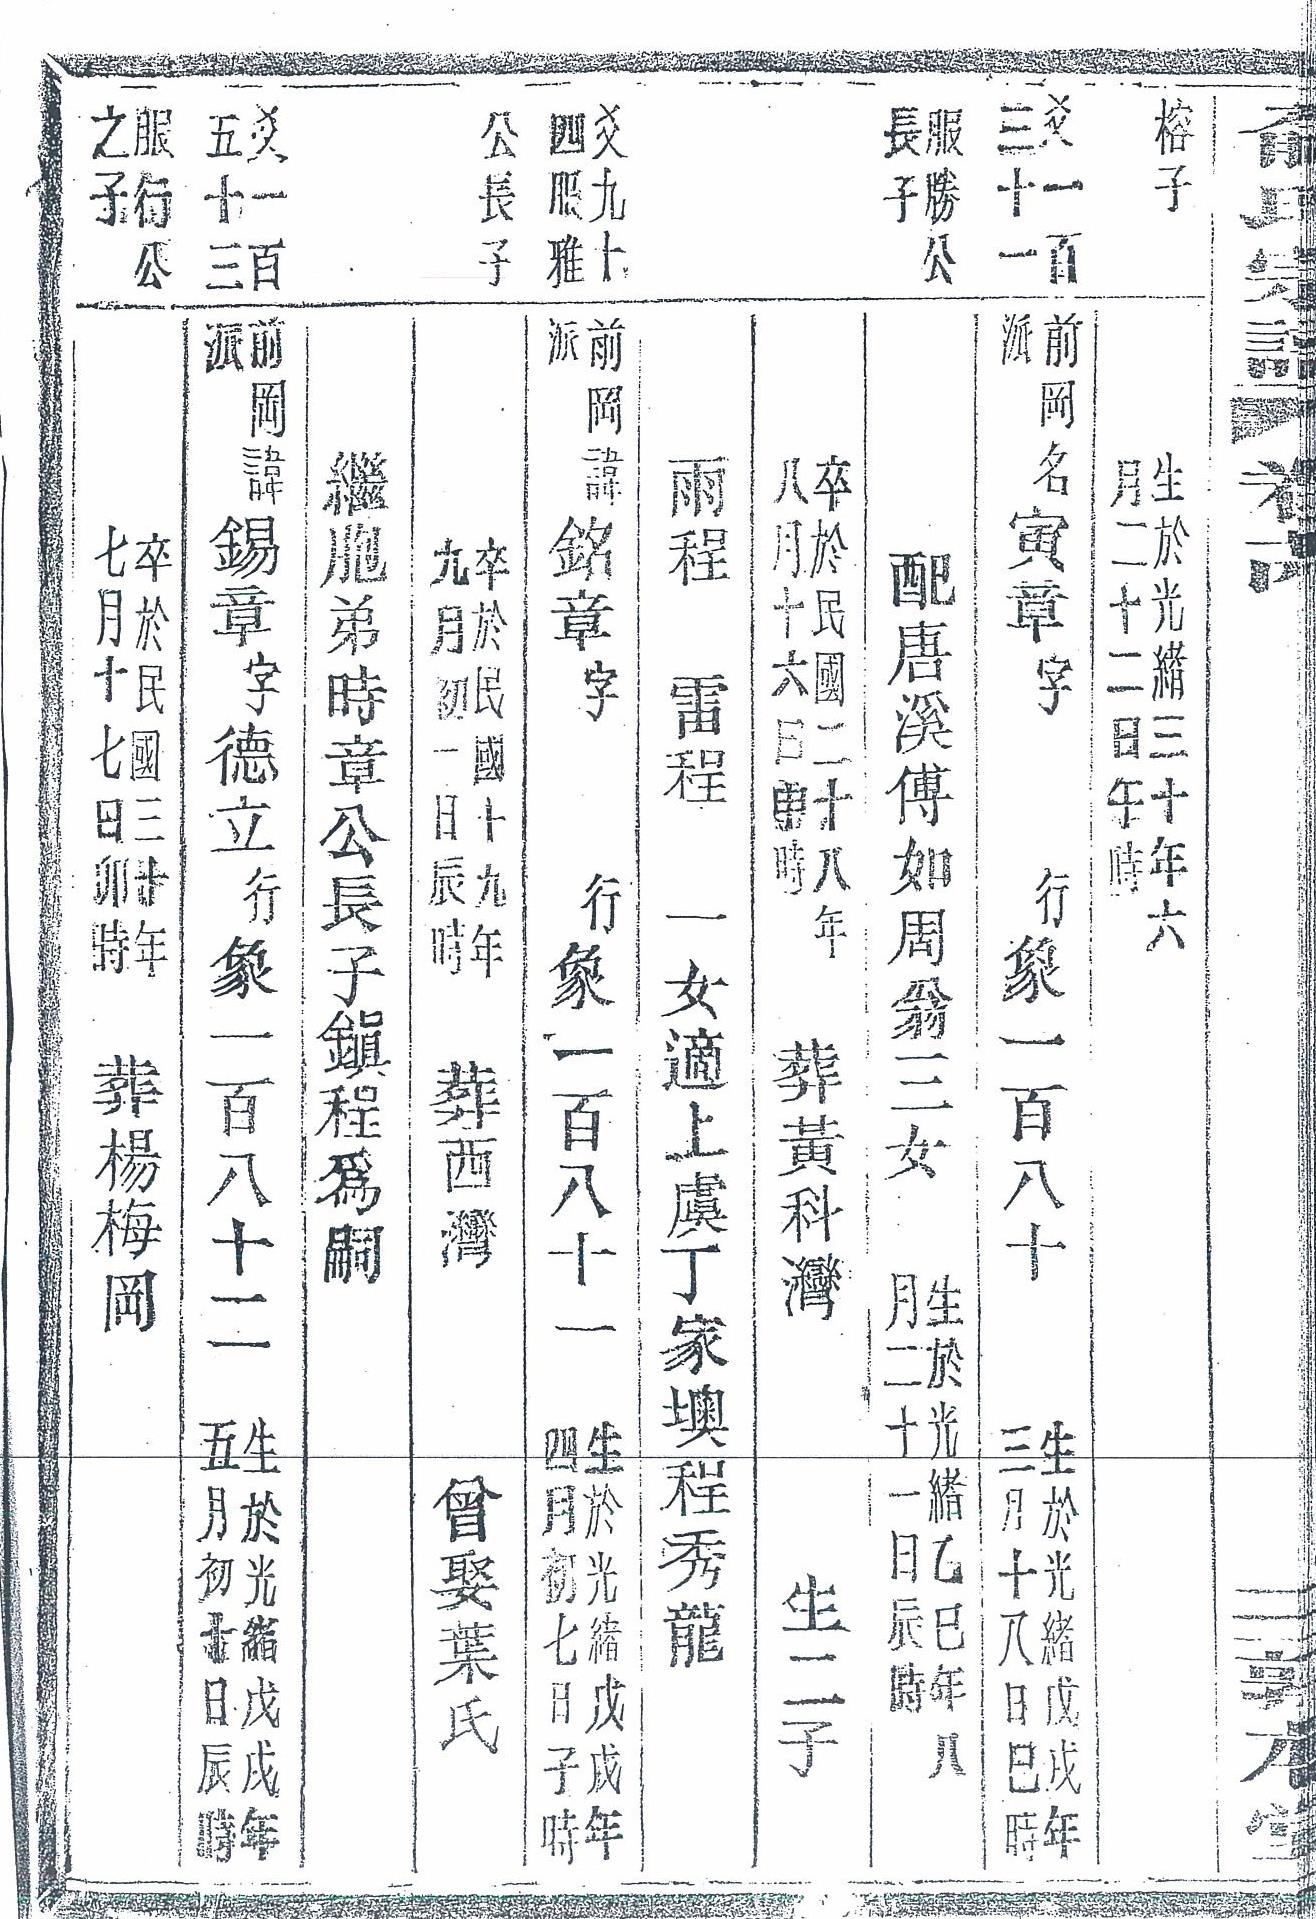 氏宗譜 卷六
榕子
生於光緒三十年六
月二十二日午時
爻一百
三十一
前岡
派
名寅章字 行象一百八十
生於光緒戊戌年
三月十八日巳時
服勝公
長子
配唐溪傅如周翁三女
生於光緒乙巳年八
月二十一日辰時
卒於民國二十八年
八月十六日申時
葬黃科灣 生二子
雨程 雷程 一女適上虞丁家墺程秀龍
爻九十
四服雅
前岡
派
諱銘章字 行象一百八十一
生於光緒戊戌年
四月初七日子時
公長子
卒於民國十九年
九月初一日辰時
葬西灣 曾娶葉氏
繼胞弟時章公長子鎮程爲嗣
爻一百
五十三
前岡
派
諱錫章字德立行象一百八十二
生於光緒戊戌年
五月初十日辰時
服衍公
之子
卒於民國三十年
七月十七日卯時
葬楊梅岡